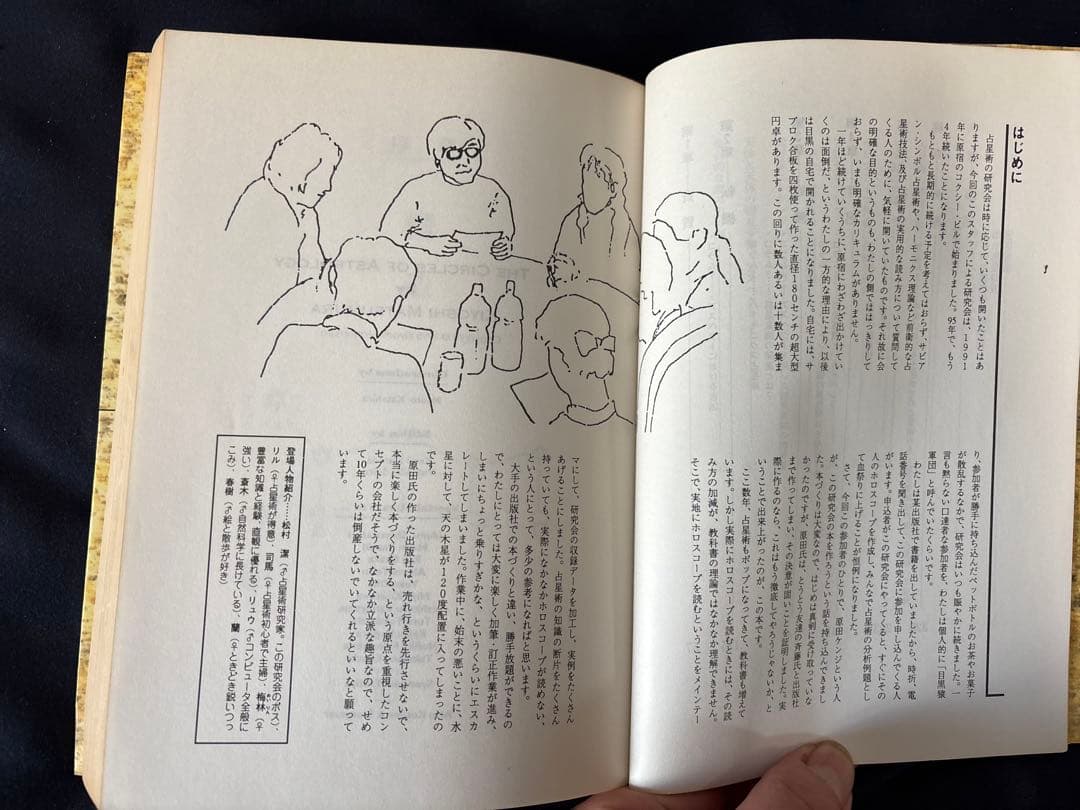 はじめに
占星術の研究会は時に応じて、いくつも開いたことはあ
りますが、今回のこのスタッフによる研究会は、1991
年に原宿のコクシー・ビルで始まりました。95年で、もう
4年続いたことになります。
もともと長期的に続ける予定を考えてはおらず、サビア
ン・シンボル占星術や、ハーモニクス理論など前衛的な占
星術技法、及び占星術の実用的な読み方について質問して
くる人のために、気軽に開いていたものです。それ故に会
の明確な目的というものも、わたしの側でははっきりして
おらず、いまも明確なカリキュラムがありません。
一年ほど続けていくうちに、原宿にわざわざ出かけてい
くのは面倒だ、というわたしの一方的な理由により、以後
は目黒の自宅で開かれることになりました。自宅には、サ
ブロク合板を四枚使って作った直径180センチの超大型
円卓があります。この回りに数人あるいは十数人が集ま
り、参加者が勝手に持ち込んだペットボトルのお茶やお菓子
が散乱するなかで、研究会はいつも賑やかに続きました。一
言も黙らない口達者な参加者を、わたしは個人的に「目黒猿
軍団」と呼んでいたくらいです。
わたしは某出版社で書籍を出していましたから、時折、電
話番号を聞き出して、この研究会に参加を申し込んでくる人
がいます。申込者がこの研究会にやってくると、すぐにその
人のホロスコープを作成し、みんなで占星術の分析例題とし
て血祭りに上げることが恒例になりました。
さて、今回この参加者のひとりで、原田ケンジという人
が、この研究会の本を作ろうという話を持ち込んできまし
た。本づくりは大変なので、はじめは真剣に受け取っていな
かったのですが、原田氏は、とうとう友達の斉藤氏と出版社
まで作ってしまい、その決意が固いことを証明しました。実
際に作るのなら、これはもう徹底してやろうじゃないか、と
いうことで出来上がったのが、この本です。
ここ数年、占星術もポップになってきて、教科書も増えて
います。しかし実際にホロスコープを読むときには、その読
み方の加減が、教科書の理論ではなかなか理解できません。
そこで、実地にホロスコープを読むということをメインテー
マにして、研究会の収録データを加工し、実例をたくさん
あげることにしました。占星術の知識の断片をたくさん
持っていても、実際になかなかホロスコープが読めない、
という人にとって、多少の参考になればと思います。
大手の出版社での本づくりと違い、勝手放題ができるの
で、わたしにとっては大変に楽しく加筆、訂正作業が進み、
しまいにちょっと乗りすぎかな、というくらいにエスカ
レートしてしまいました。作業中に、始末の悪いことに、水
星に対して、天の木星が120度配置に入ってしまったの
です。
原田氏の作った出版社は、売れ行きを先行させないで、
本当に楽しく本づくりをする、という原点を重視したコン
セプトの会社だそうで、なかなか立派な趣旨なので、せめ
て10年くらいは倒産しないでいてくれるといいなと願って
います。
登場人物紹介……松村 潔(♂占星術研究家。この研究会のボス)、
リル(♀占星術が得意)、司馬(♀占星術初心者で主婦)、梅林(♀
豊富な知識と経験、直観に優れる)、リュウ(♂コンピュータ全般に
強い)、斎木(♂自然科学に長けている)、蘭(♀ときどき鋭いつっ
こみ)、春樹(♂絵と散歩が好き)